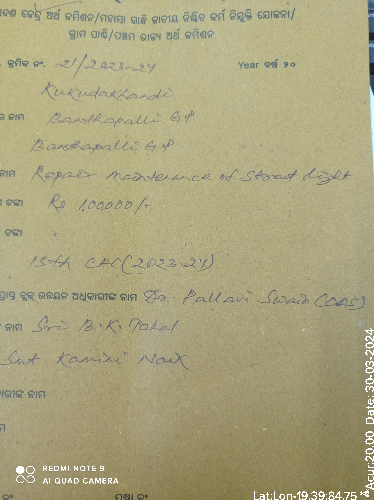 ଦଶ କେନ୍ଦ୍ର ଅର୍ଥ କମିଶନ/ମହାତ୍ମା ଗାନ୍ଧି ଜାତୀୟ ନିଶ୍ଚିତ କର୍ମ ନିଯୁକ୍ତି ଯୋଜନା/
ଗ୍ରାମ ପାଣ୍ଠି/ପଞ୍ଚମ ରାଜ୍ୟ ଅର୍ଥ କମିଶନ
କ୍ରମିକ ନଂ. 21/2023-24 Year ବର୍ଷ ୨୦
Kukudakhandi
ର ନାମ Banthapalli G.P
Banthapalli G.P
ନାମ Repair maintenance of Street Light
ଟଙ୍କା Rs 1,00,000/-
ଟଙ୍କା
15th CFC (2023-24)
ପ୍ରାପ୍ତ ବ୍ଲକ୍ ଉନ୍ନୟନ ଅଧିକାରୀଙ୍କ ନାମ Dr. Pallavi Swain (OAS)
ନାମ Sri B.K.
Smt Kamini Naik
ାରୀଙ୍କ ନାମ
ମ
REDMI NOTE 9
AI QUAD CAMERA
ନଂ
Lat:Lon-19.39:84.75 *Acur:20.00 Date: 30-03-2024